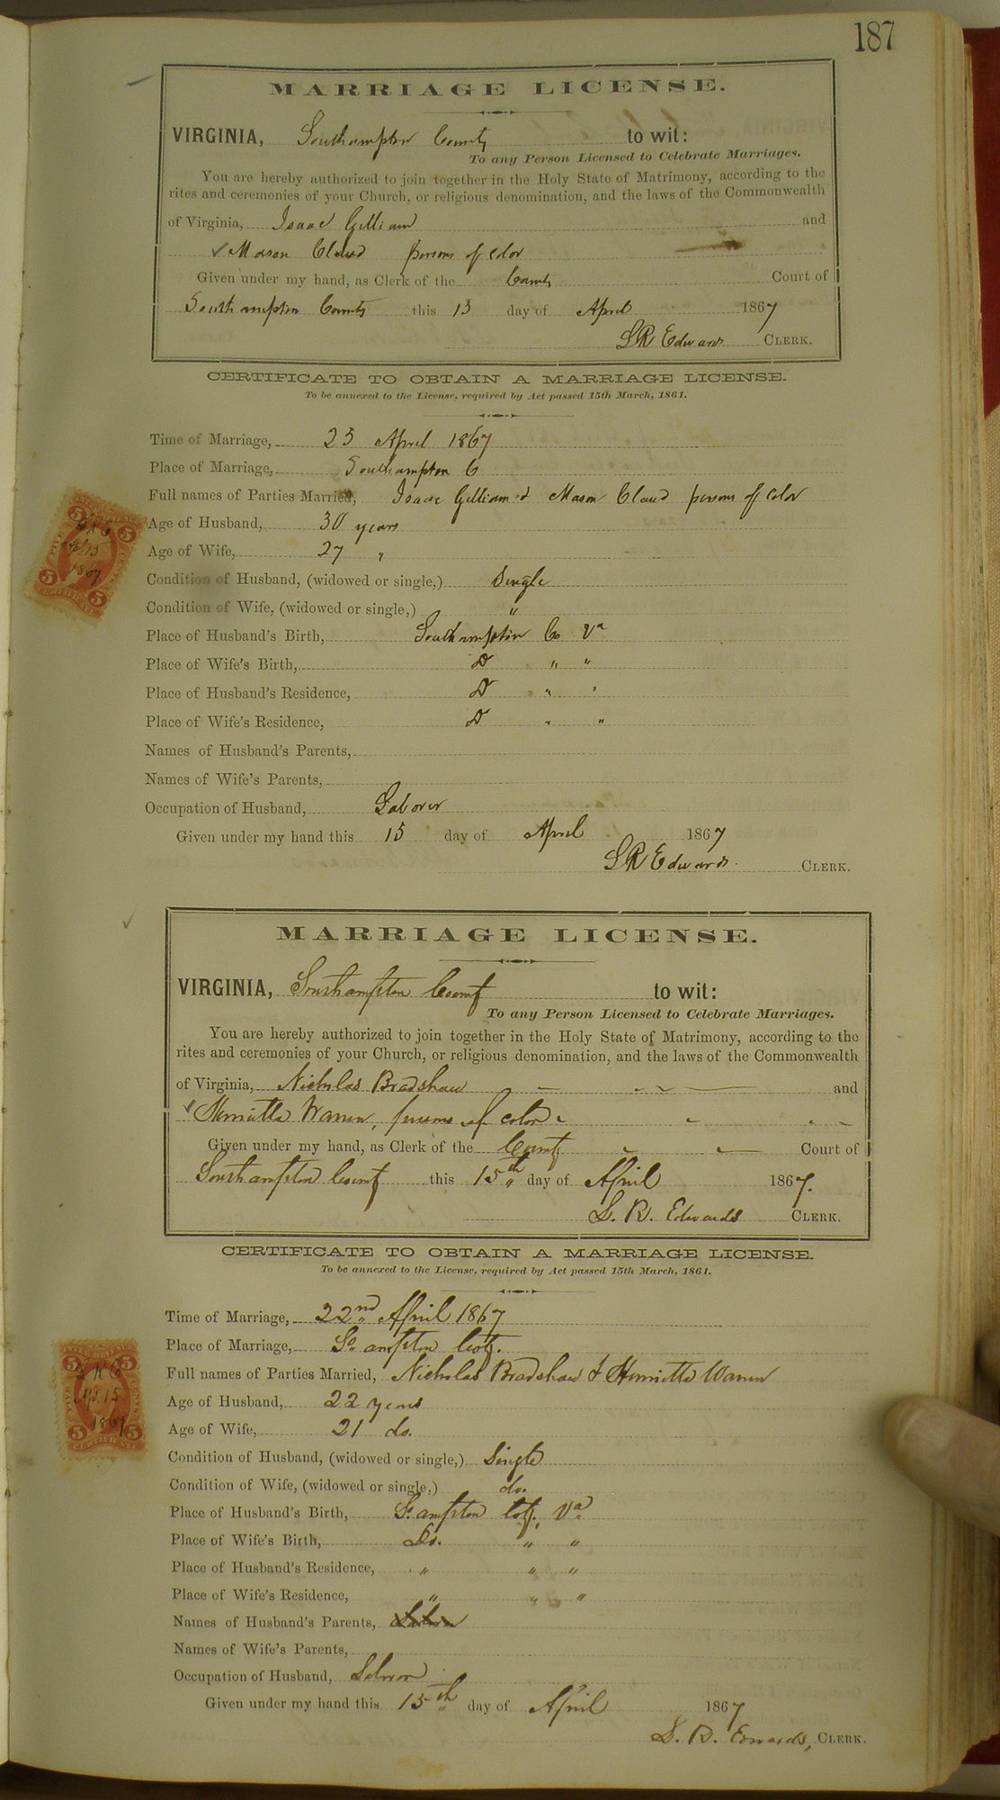 187
MARRIAGE LICENSE.
VIRGINIA, Southampton County to wit:
To any Person Licensed to Celebrate Marriages.
You are hereby authorized to join together in the Holy State of Matrimony, according to the
rites and ceremonies of your Church, or religious denomination, and the laws of the Commonwealth
of Virginia, Isaac Gilliam and
Mason Claud persons of color
Given under my hand, as Clerk of the County Court of
Southampton County this 15 day of April 1867
LR Edwards CLERK.
CERTIFICATE TO OBTAIN A MARRIAGE LICENSE.
To be annexed to the License, required by Act passed 15th March, 1861.
Time of Marriage, 23 April 1867
Place of Marriage, Southampton C
Full names of Parties Married, Isaac Gilliam & Mason Claud persons of color
Age of Husband, 30 years
Age of Wife, 27 "
Condition of Husband, (widowed or single,) Single
Condition of Wife, (widowed or single,) "
Place of Husband's Birth, Southampton Co Va
Place of Wife's Birth, Do " "
Place of Husband's Residence, Do " "
Place of Wife's Residence, Do " "
Names of Husband's Parents,
Names of Wife's Parents,
Occupation of Husband, Laborer
Given under my hand this 15 day of April 1867
LR Edwards CLERK.
MARRIAGE LICENSE.
VIRGINIA, Southampton County to wit:
To any Person Licensed to Celebrate Marriages.
You are hereby authorized to join together in the Holy State of Matrimony, according to the
rites and ceremonies of your Church, or religious denomination, and the laws of the Commonwealth
of Virginia, Nicholas Bradshaw and
Henrietta Warren, persons of color
Given under my hand, as Clerk of the County Court of
Southampton County this 15th day of April 1867.
L. R. Edwards CLERK.
CERTIFICATE TO OBTAIN A MARRIAGE LICENSE.
To be annexed to the License, required by Act passed 15th March, 1861.
Time of Marriage, 22nd April 1867
Place of Marriage, So ampton Coty.
Full names of Parties Married, Nicholas Bradshaw & Henrietta Warren
Age of Husband, 22 years
Age of Wife, 21 do.
Condition of Husband, (widowed or single,) Single
Condition of Wife, (widowed or single,) do.
Place of Husband's Birth, So ampton Coty, Va
Place of Wife's Birth, Do. " "
Place of Husband's Residence, " " "
Place of Wife's Residence, " " "
Names of Husband's Parents,
Names of Wife's Parents,
Occupation of Husband, Laborer
Given under my hand this 15th day of April 1867
L. R. Edwards, CLERK.